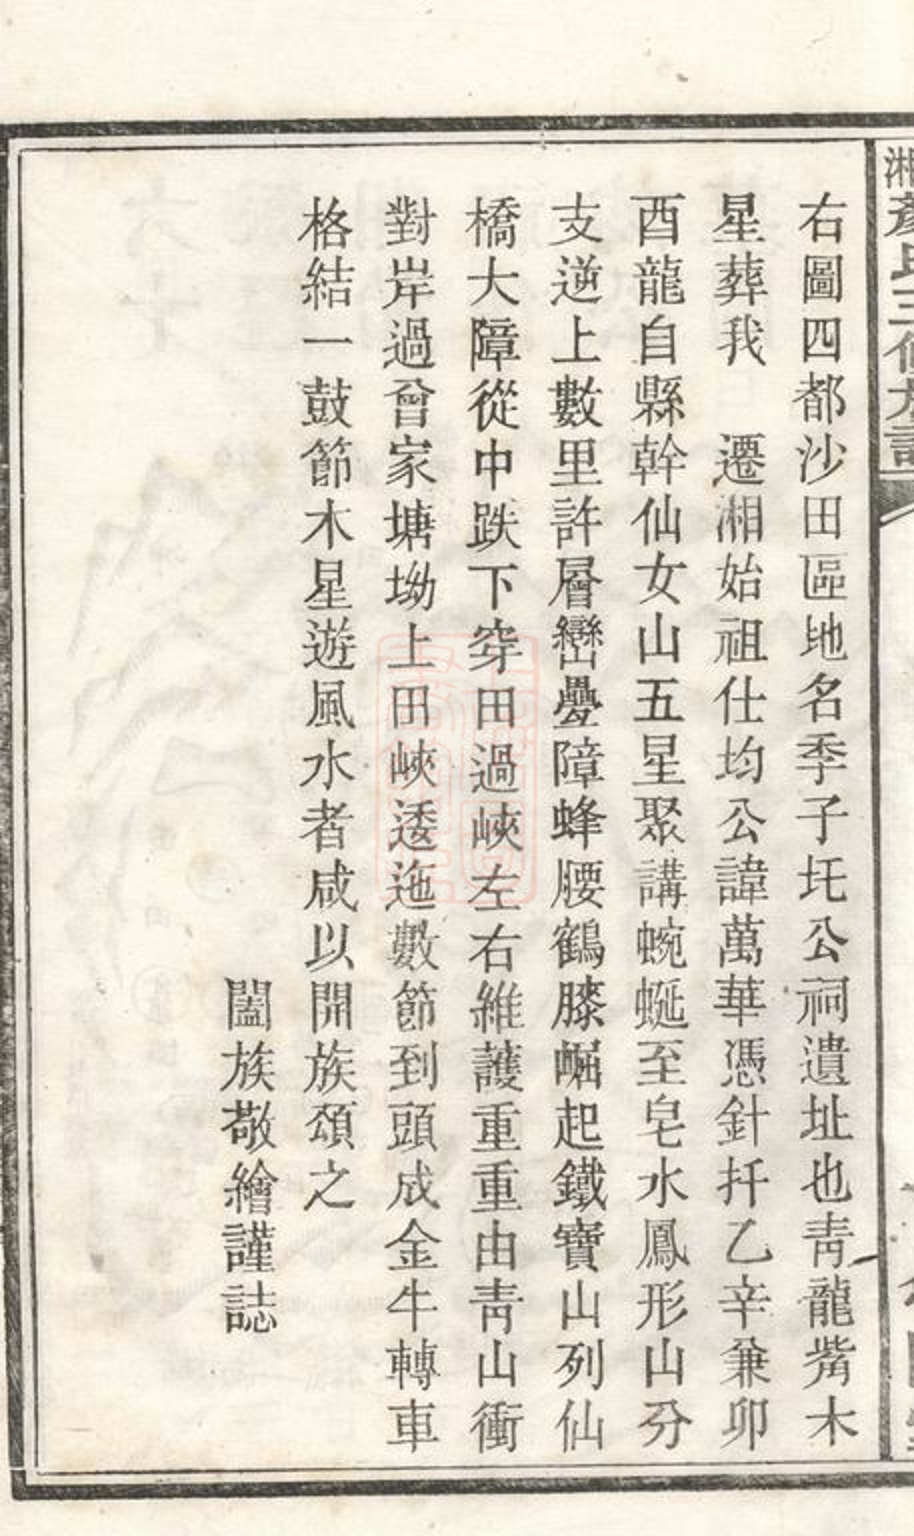 右圖四都沙田區地名季子圫公祠遺址也靑龍嘴木
星葬我　遷湘始祖仕均公諱萬華憑針扦乙辛兼卯
酉龍自縣幹仙女山五星聚講蜿蜒至皂水鳳形山分
支逆上數里許層巒疊障蜂腰鶴膝崛起鐵寶山列仙
橋大障從中跌下穿田過峽左右維護重重由靑山衝
對岸過曾家塘坳上田峽逶迤數節到頭成金牛轉車
格結一鼓節木星遊風水者咸以開族頌之
闔族敬繪謹誌